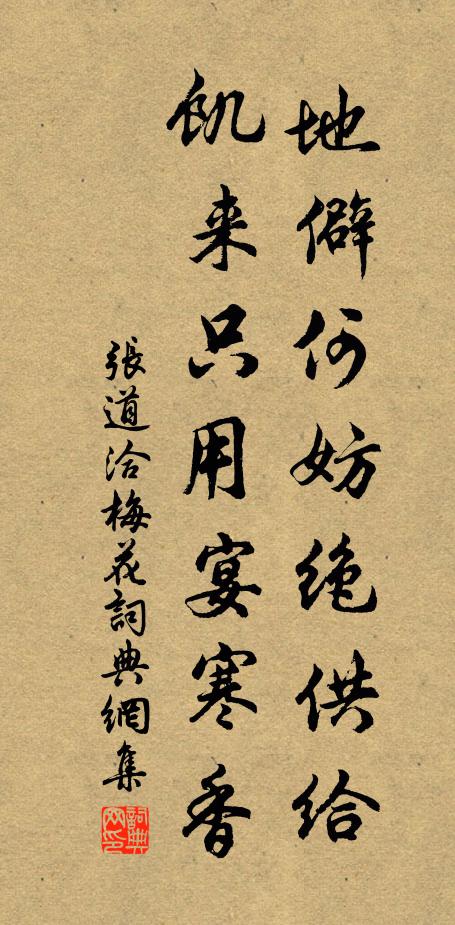 地僻何妨绝供给
飢来只用宴寒香
張道洽梅花詞典網集
詞典网印